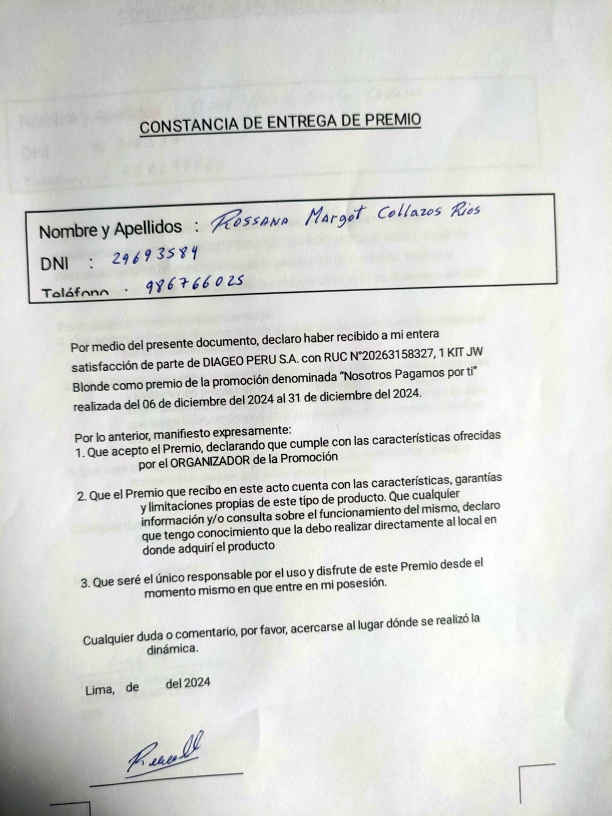 CONSTANCIA DE ENTREGA DE PREMIO
Nombre y Apellidos : Rossana Margot Collazos Rios
DNI : 29693584
Teléfono : 986766025
Por medio del presente documento, declaro haber recibido a mi entera
satisfacción de parte de DIAGEO PERU S.A. con RUC N°20263158327, 1 KIT JW
Blonde como premio de la promoción denominada "Nosotros Pagamos por ti"
realizada del 06 de diciembre del 2024 al 31 de diciembre del 2024.
Por lo anterior, manifiesto expresamente:
1. Que acepto el Premio, declarando que cumple con las características ofrecidas
por el ORGANIZADOR de la Promoción
2. Que el Premio que recibo en este acto cuenta con las características, garantías
y limitaciones propias de este tipo de producto. Que cualquier
información y/o consulta sobre el funcionamiento del mismo, declaro
que tengo conocimiento que la debo realizar directamente al local en
donde adquirí el producto
3. Que seré el único responsable por el uso y disfrute de este Premio desde el
momento mismo en que entre en mi posesión.
Cualquier duda o comentario, por favor, acercarse al lugar dónde se realizó la
dinámica.
Lima, de del 2024